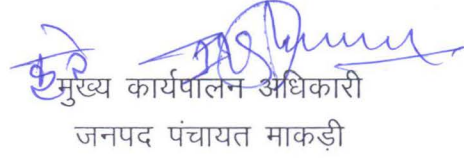 मुख्य कार्यपालन अधिकारी
जनपद पंचायत माकड़ी